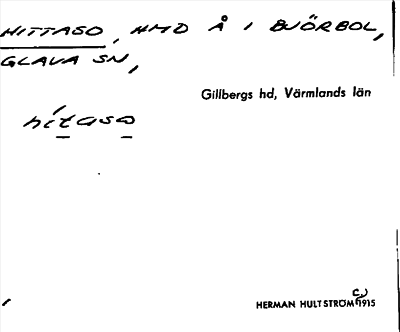 HITTASO, HMD Å I BJÖRBOL,
GLAVA SN,
Gillbergs hd, Värmlands län
hítaso
HERMAN HULTSTRÖM (c.) 1915